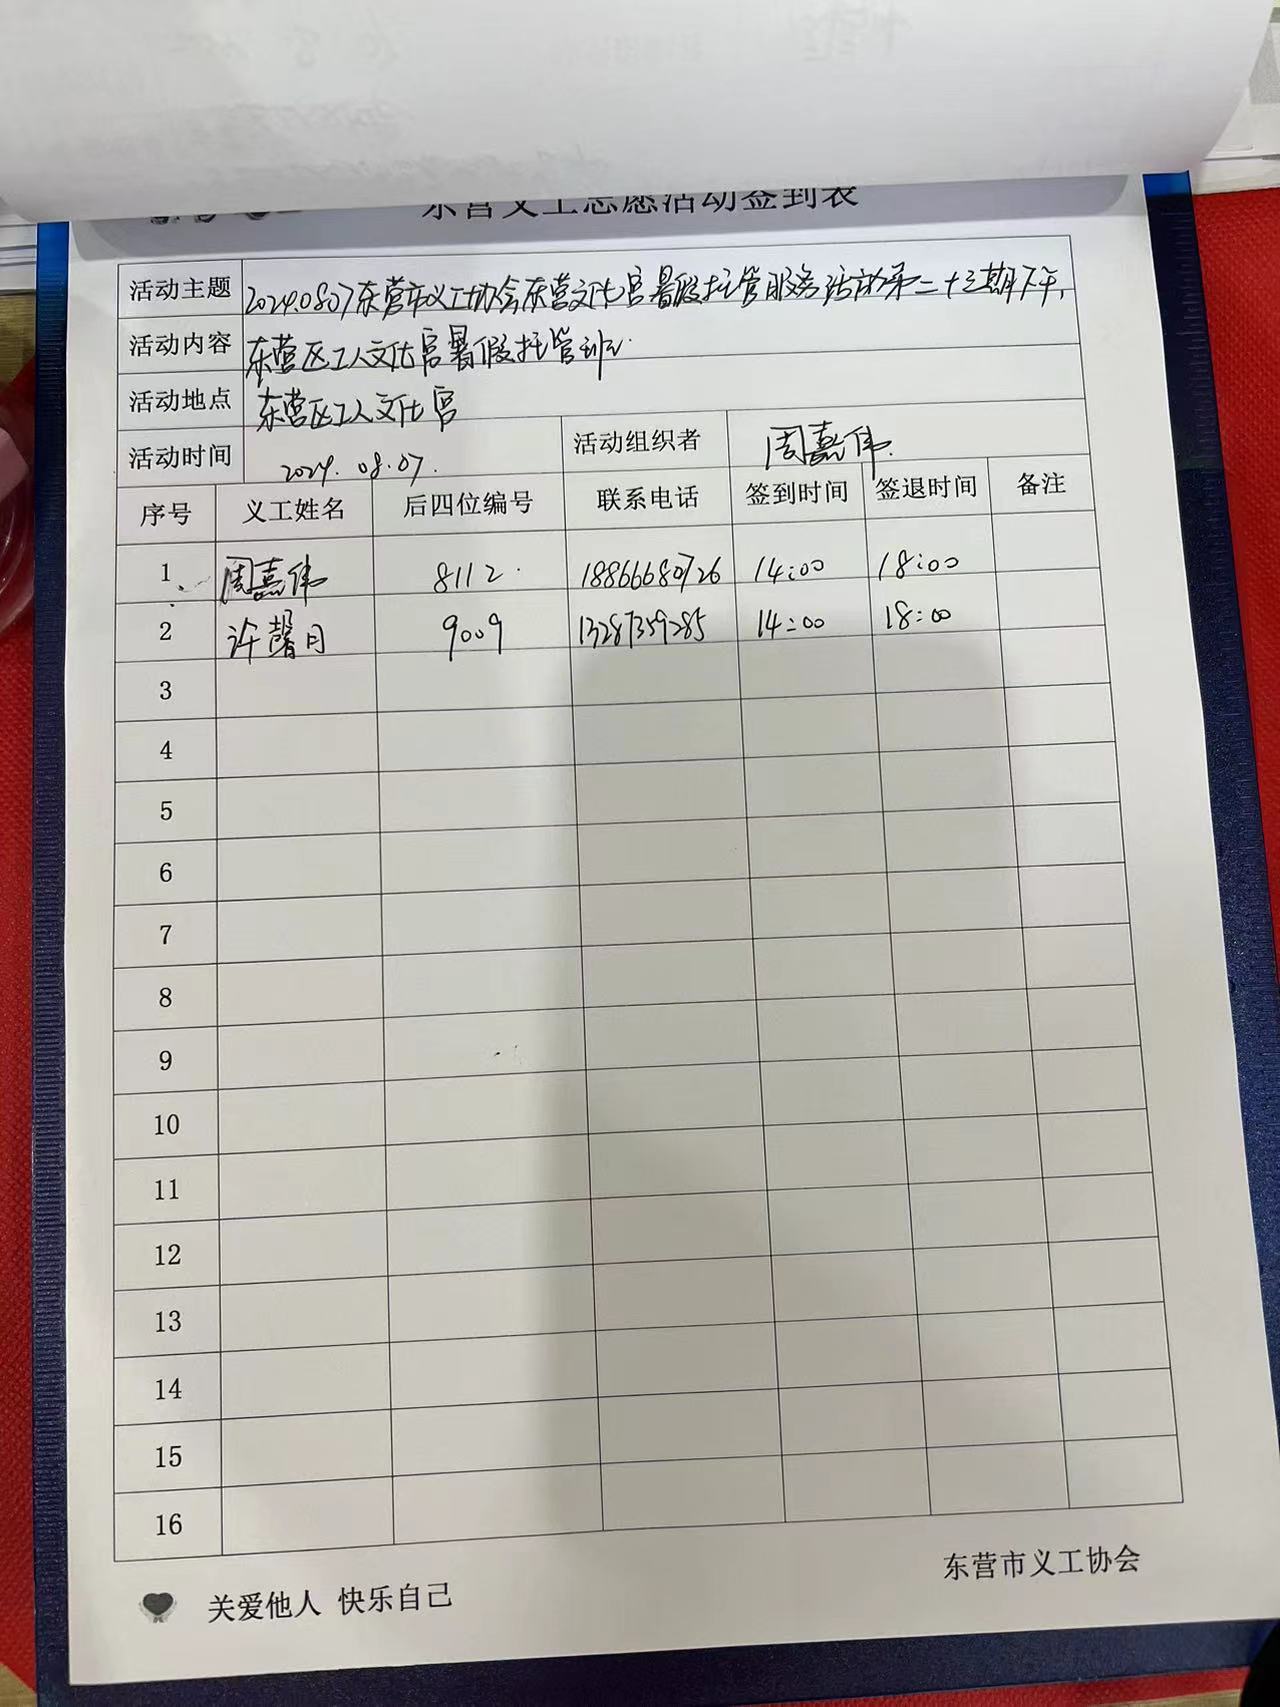 东营义工志愿活动签到表
活动主题 2024.0807东营市义工协会东营文化宫暑假托管服务活动第二十三期下午.
活动内容 东营区工人文化宫暑假托管班.
活动地点 东营区工人文化宫
活动时间 2024.08.07. 活动组织者 周嘉伟
序号 义工姓名 后四位编号 联系电话 签到时间 签退时间 备注
1 周嘉伟 8112 18866680726 14:00 18:00
2 许馨月 9009 13287359285 14:00 18:00
3
4
5
6
7
8
9
10
11
12
13
14
15
16
东营市义工协会
关爱他人 快乐自己